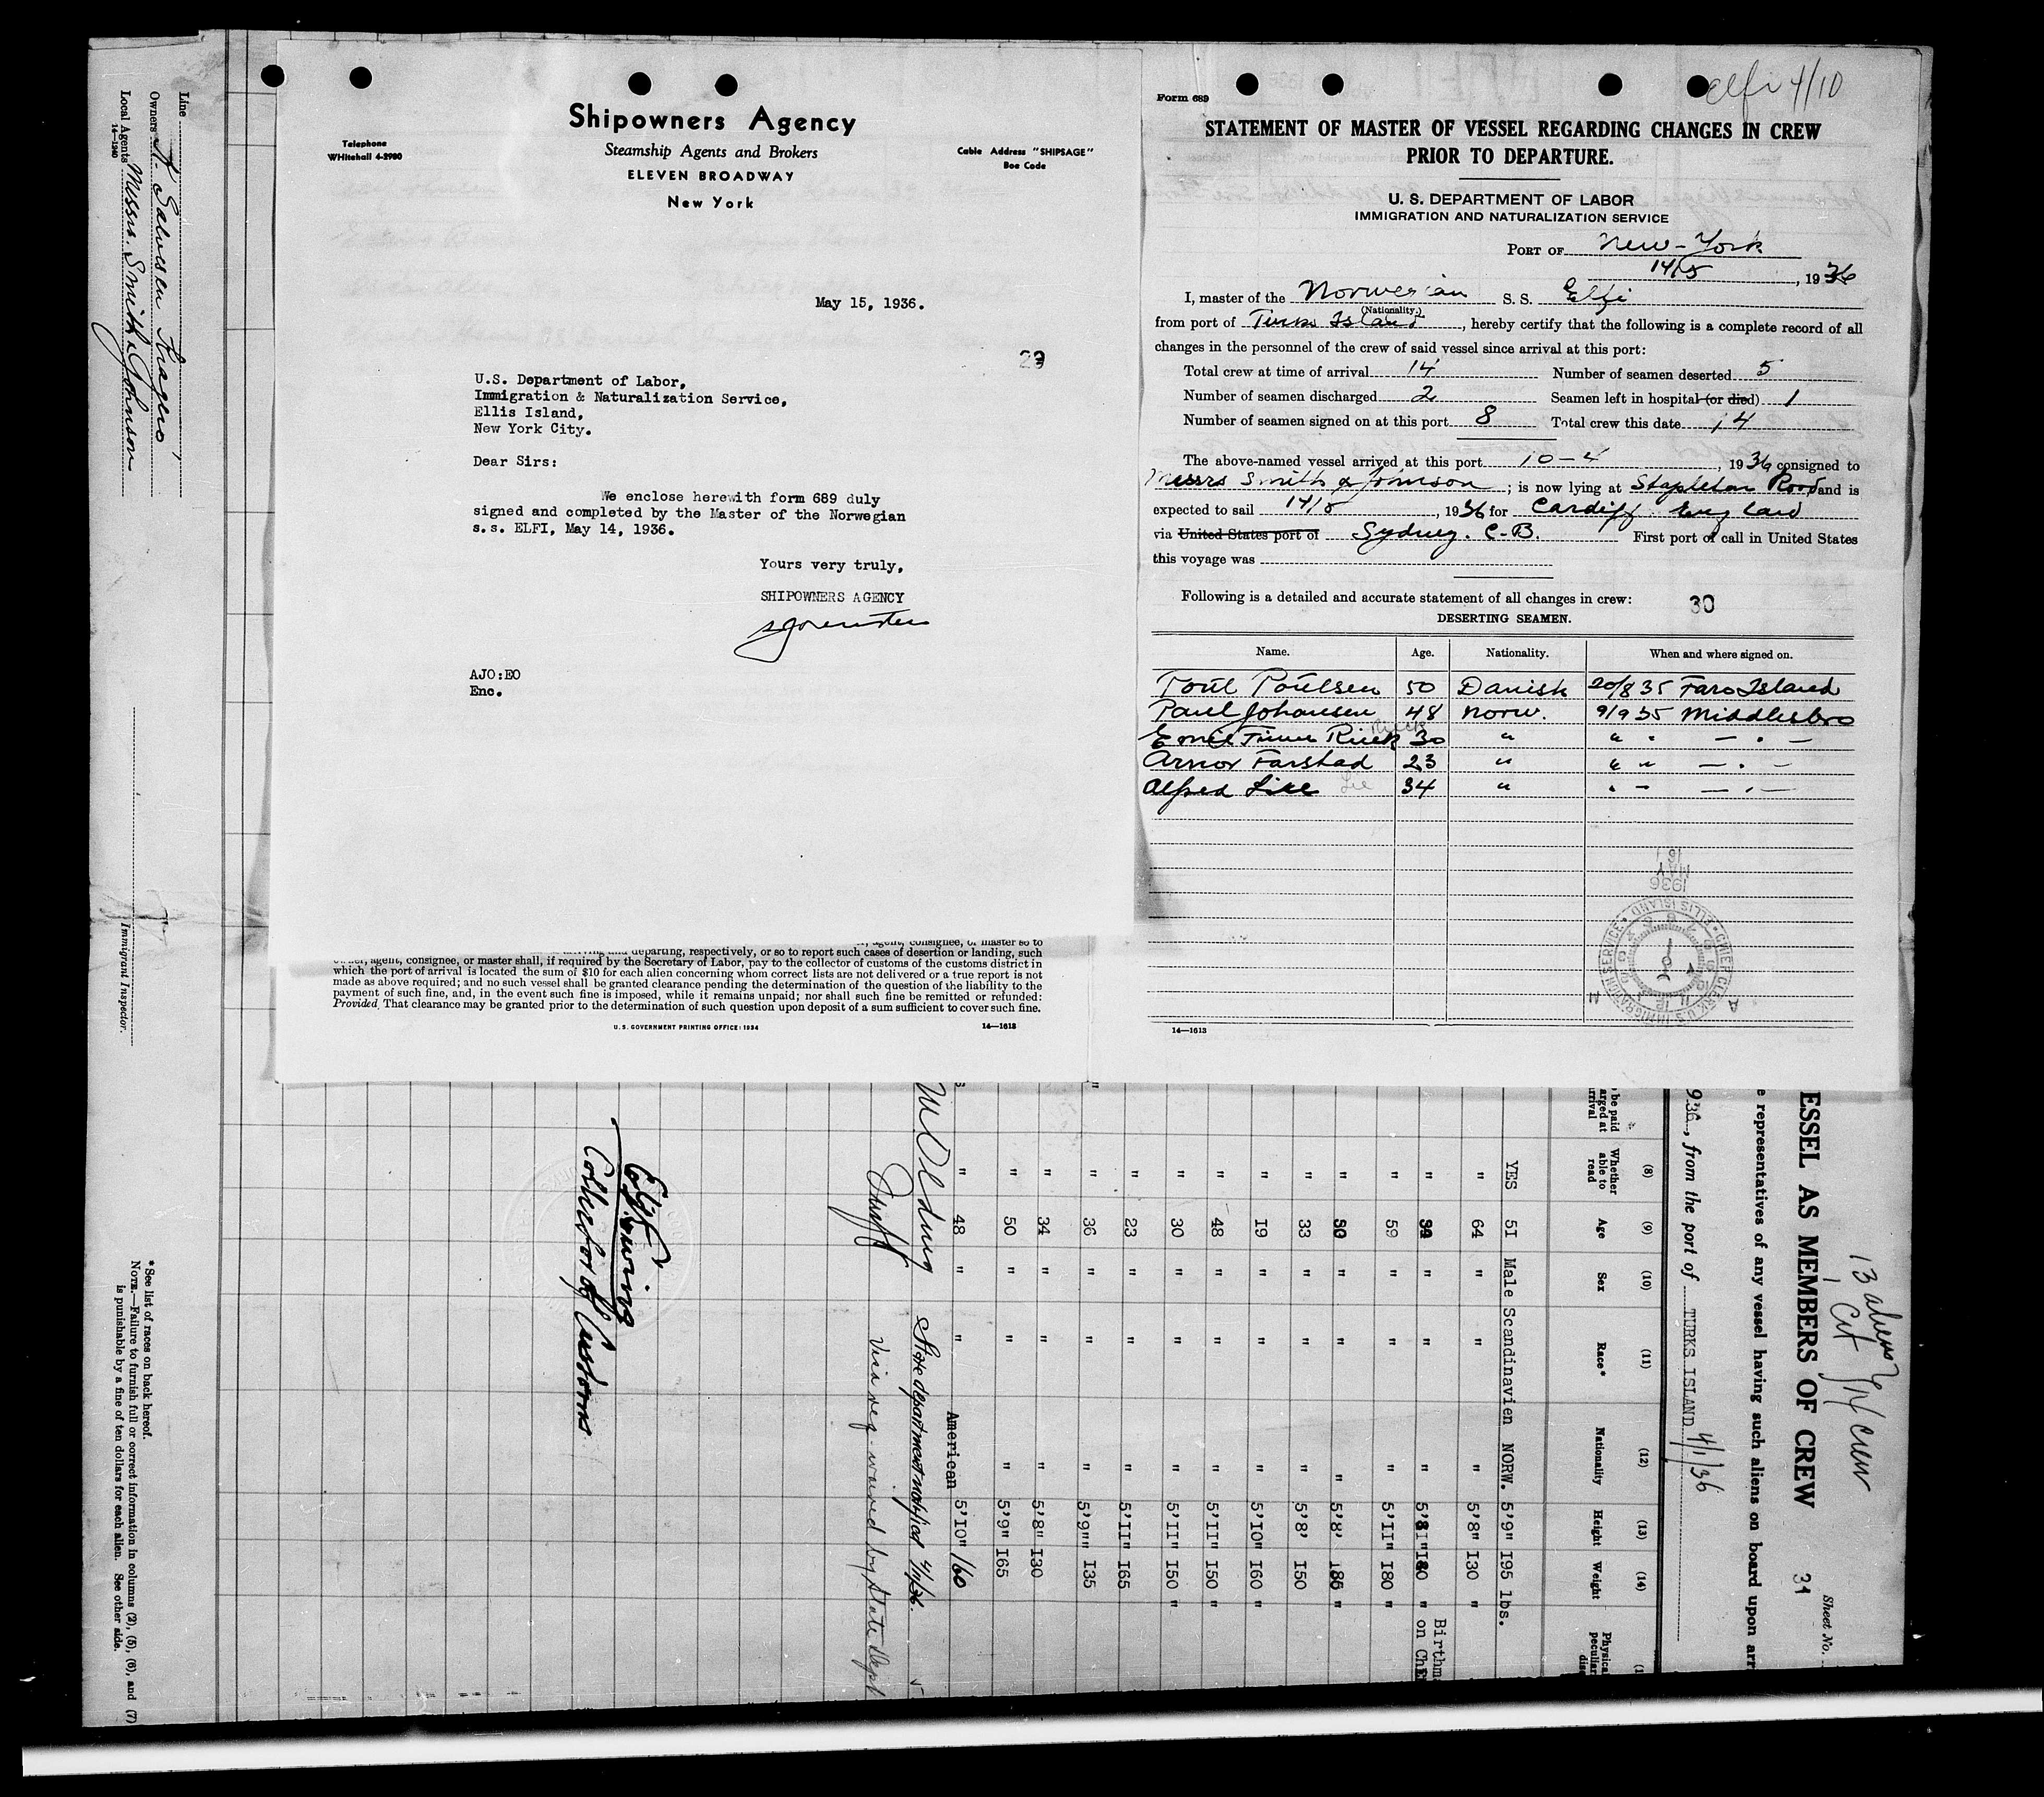 Shipowners Agency
Steamship Agents and Brokers
ELEVEN BROADWAY
New York
Telephone
WHitehall 4-2980
Cable Address "SHIPSAGE"
Boe Code
May 15, 1936.
29
U.S. Department of Labor,
Immigration & Naturalization Service,
Ellis Island,
New York City.
Dear Sirs:
We enclose herewith form 689 duly
signed and completed by the Master of the Norwegian
s.s. ELFI, May 14, 1936.
Yours very truly,
SHIPOWNERS AGENCY
AJO:EO
Enc.
departing, respectively, or so to report such cases of desertion or landing, such
agent, consignee, or master shall, if required by the Secretary of Labor, pay to the collector of customs of the customs district in
which the port of arrival is located the sum of $10 for each alien concerning whom correct lists are not delivered or a true report is not
made as above required; and no such vessel shall be granted clearance pending the determination of the question of the liability to the
payment of such fine, and, in the event such fine is imposed, while it remains unpaid; nor shall such fine be remitted or refunded:
Provided, That clearance may be granted prior to the determination of such question upon deposit of a sum sufficient to cover such fine.
U. S. GOVERNMENT PRINTING OFFICE: 1934 14—1613
Elfi 4/10
Form 689
STATEMENT OF MASTER OF VESSEL REGARDING CHANGES IN CREW
PRIOR TO DEPARTURE.
U. S. DEPARTMENT OF LABOR
IMMIGRATION AND NATURALIZATION SERVICE
PORT OF New-York
14/5, 1936
I, master of the Norwegian S. S. Elfi
(Nationality.)
from port of Turks Island, hereby certify that the following is a complete record of all
changes in the personnel of the crew of said vessel since arrival at this port:
Total crew at time of arrival 14 Number of seamen deserted 5
Number of seamen discharged 2 Seamen left in hospital (or died) 1
Number of seamen signed on at this port 8 Total crew this date 14
The above-named vessel arrived at this port 10-4, 1936 consigned to
Messrs Smith & Johnson; is now lying at Stapleton Road and is
expected to sail 14/5, 1936 for Cardiff England
via United States port of Sydney. C.B. First port of call in United States
this voyage was
Following is a detailed and accurate statement of all changes in crew: 30
DESERTING SEAMEN.
Name. Age. Nationality. When and where signed on.
Poul Poulsen 50 Danish 20/8 35 Faro Island
Paul Johansen 48 Norw. 9/9 35 Middlesbro
30 " " "
Arnor Farstad 23 " " "
Alfred Lie 34 "
14—1613
1936
MAY
16
CHIEF CLERK U.S. IMMIGRATION SERVICE
ELLIS ISLAND
Line
Owners A. Salvesen Kragero
Local Agents Messrs. Smith & Johnson
14—1240
Immigrant Inspector.
*See list of races on back hereof.
NOTE.—Failure to furnish full or correct information in columns (2), (5), (6), and (7)
is punishable by a fine of ten dollars for each alien. See other side.
Sheet No.
31
13 aliens
1 Cit
crew
ESSEL AS MEMBERS OF CREW
e representatives of any vessel having such aliens on board upon arr
936, from the port of TURKS ISLAND 4/1/36
(8) (9) (10) (11) (12) (13) (14)
Whether able to read Age Sex Race* Nationality Height Weight
YES 51 Male Scandinavien NORW. 5'9" 195 lbs.
" 64 " " " 5'8" 130 "
" 59 " " " 5'11" 180 "
" 50 " " " 5'8'
" 33 " " " 5'8' 150 "
" 19 " " " 5'10" 160 "
" 48 " " " 5'11" 150 "
" 30 " " " 5'11" 150 "
" 23 " " " 5'11" 165
" 36 " " " 5'9" 135
" 34 " " " 5'8" 130
" 50 " " " 5'9" 165
" 48 " " American 5'10" 160
Birthm
on Ch
State department notified 4/1/36.
Visa req. waived by State Dept
Collector of Customs